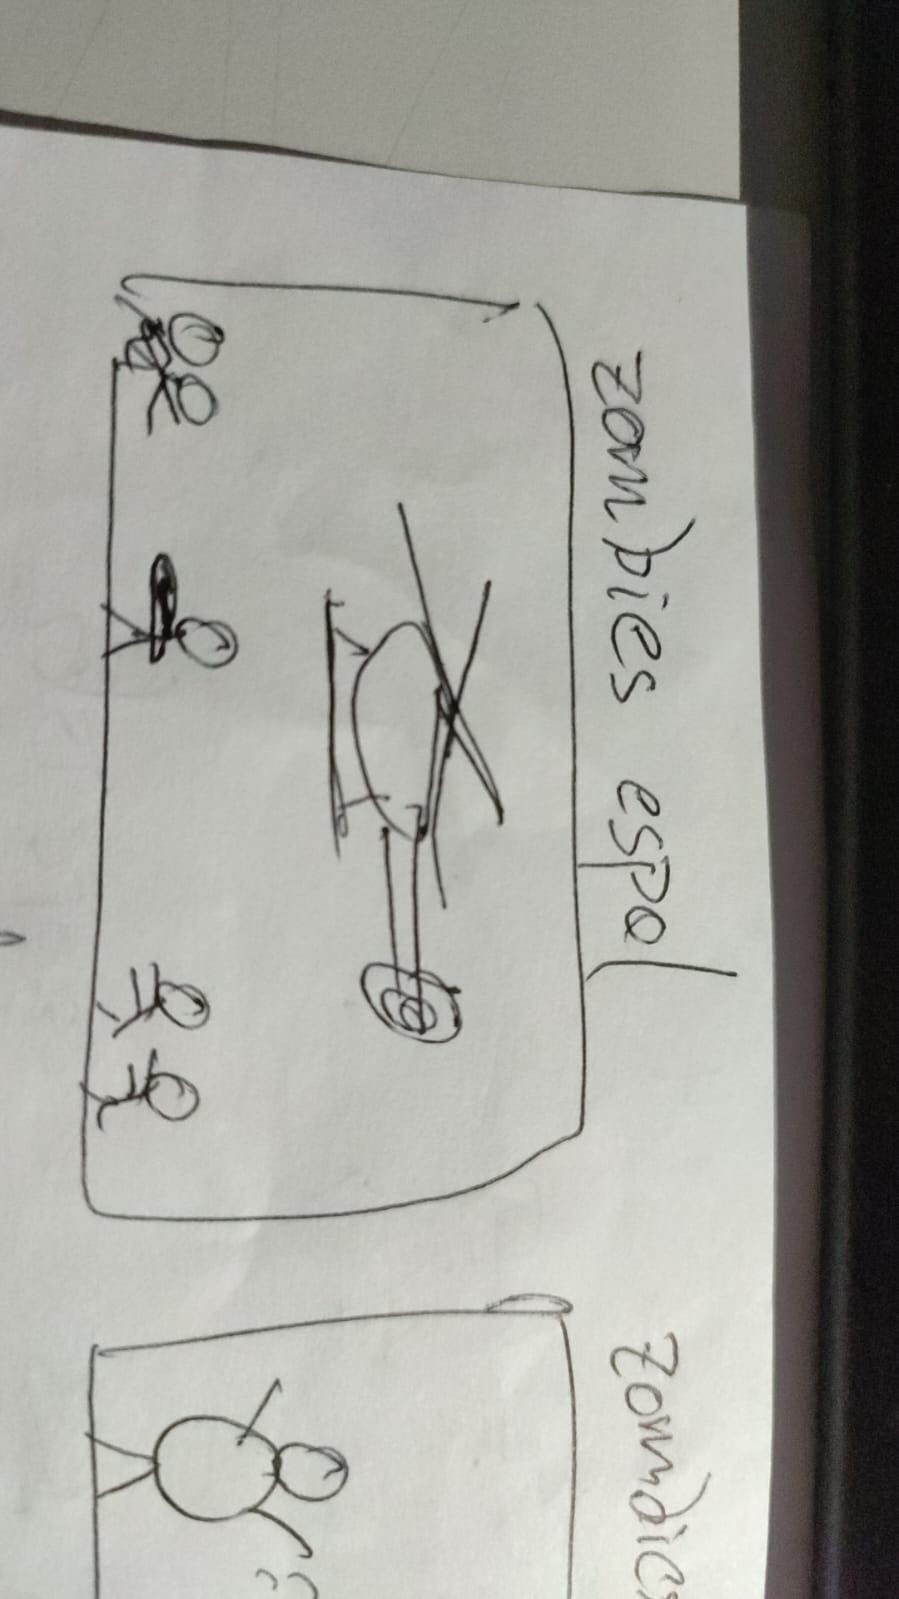 zombies espol
zombies